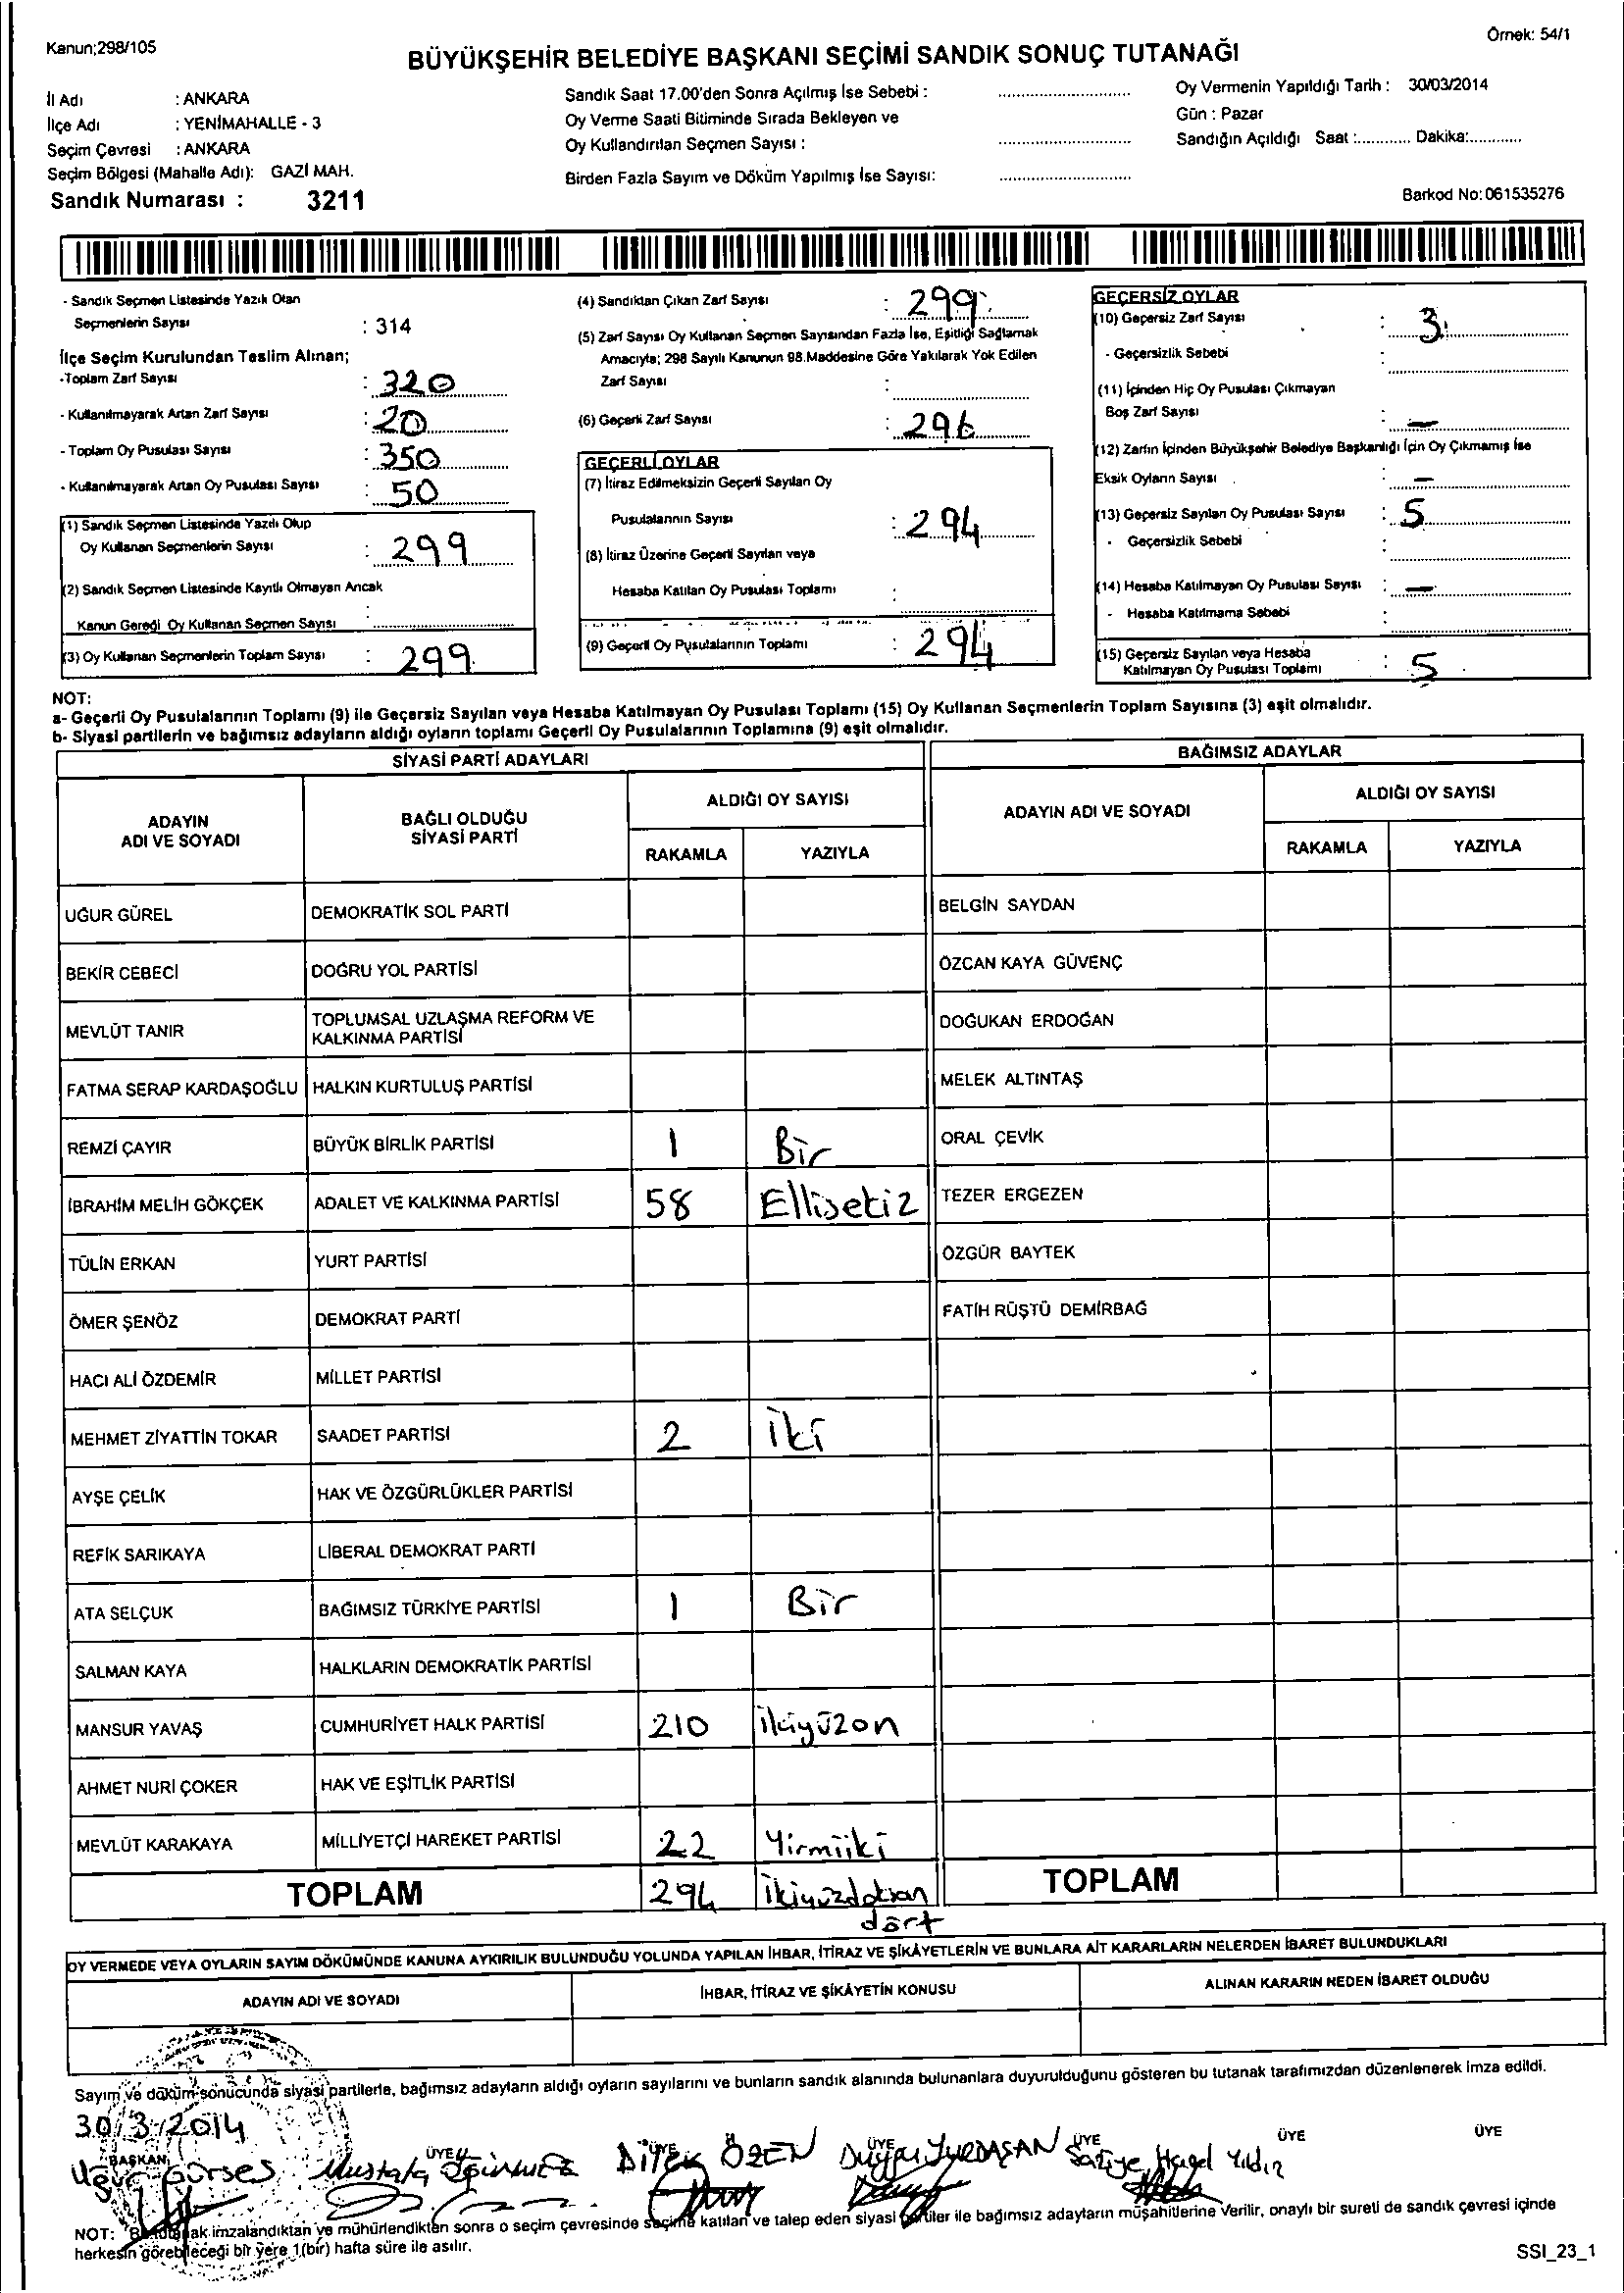 Kanun;298/105
Örnek: 54/1
BÜYÜKŞEHİR BELEDİYE BAŞKANI SEÇİMİ SANDIK SONUÇ TUTANAĞI
İl Adı : ANKARA
İlçe Adı : YENİMAHALLE - 3
Seçim Çevresi : ANKARA
Seçim Bölgesi (Mahalle Adı): GAZİ MAH.
Sandık Numarası : 3211
Sandık Saat 17.00'den Sonra Açılmış İse Sebebi :
Oy Verme Saati Bitiminde Sırada Bekleyen ve
Oy Kullandırılan Seçmen Sayısı :
Birden Fazla Sayım ve Döküm Yapılmış İse Sayısı:
Oy Vermenin Yapıldığı Tarih : 30/03/2014
Gün : Pazar
Sandığın Açıldığı Saat :............ Dakika:............
Barkod No:061535276
- Sandık Seçmen Listesinde Yazılı Olan
Seçmenlerin Sayısı : 314
İlçe Seçim Kurulundan Teslim Alınan;
-Toplam Zarf Sayısı : 320
- Kullanılmayarak Artan Zarf Sayısı : 20
- Toplam Oy Pusulası Sayısı : 350
- Kullanılmayarak Artan Oy Pusulası Sayısı : 50
(1) Sandık Seçmen Listesinde Yazılı Olup
Oy Kullanan Seçmenlerin Sayısı : 299
(2) Sandık Seçmen Listesinde Kayıtlı Olmayan Ancak
Kanun Gereği Oy Kullanan Seçmen Sayısı :
(3) Oy Kullanan Seçmenlerin Toplam Sayısı : 299
(4) Sandıktan Çıkan Zarf Sayısı : 299
(5) Zarf Sayısı Oy Kullanan Seçmen Sayısından Fazla İse, Eşitliği Sağlamak
Amacıyla; 298 Sayılı Kanunun 98.Maddesine Göre Yakılarak Yok Edilen
Zarf Sayısı :
(6) Geçerli Zarf Sayısı : 296
GEÇERLİ OYLAR
(7) İtiraz Edilmeksizin Geçerli Sayılan Oy
Pusulalarının Sayısı : 294
(8) İtiraz Üzerine Geçerli Sayılan veya
Hesaba Katılan Oy Pusulası Toplamı :
(9) Geçerli Oy Pusulalarının Toplamı : 294
GEÇERSİZ OYLAR
(10) Geçersiz Zarf Sayısı : 3
- Geçersizlik Sebebi :
(11) İçinden Hiç Oy Pusulası Çıkmayan
Boş Zarf Sayısı : —
(12) Zarfın İçinden Büyükşehir Belediye Başkanlığı İçin Oy Çıkmamış İse
Eksik Oyların Sayısı : —
(13) Geçersiz Sayılan Oy Pusulası Sayısı : 5
- Geçersizlik Sebebi :
(14) Hesaba Katılmayan Oy Pusulası Sayısı : —
- Hesaba Katılmama Sebebi :
(15) Geçersiz Sayılan veya Hesaba
Katılmayan Oy Pusulası Toplamı : 5
NOT:
a- Geçerli Oy Pusulalarının Toplamı (9) ile Geçersiz Sayılan veya Hesaba Katılmayan Oy Pusulası Toplamı (15) Oy Kullanan Seçmenlerin Toplam Sayısına (3) eşit olmalıdır.
b- Siyasi partilerin ve bağımsız adayların aldığı oyların toplamı Geçerli Oy Pusulalarının Toplamına (9) eşit olmalıdır.
SİYASİ PARTİ ADAYLARI
ADAYIN ADI VE SOYADI
BAĞLI OLDUĞU SİYASİ PARTİ
ALDIĞI OY SAYISI
RAKAMLA YAZIYLA
UĞUR GÜREL DEMOKRATİK SOL PARTİ
BEKİR CEBECİ DOĞRU YOL PARTİSİ
MEVLÜT TANIR TOPLUMSAL UZLAŞMA REFORM VE KALKINMA PARTİSİ
FATMA SERAP KARDAŞOĞLU HALKIN KURTULUŞ PARTİSİ
REMZİ ÇAYIR BÜYÜK BİRLİK PARTİSİ 1 Bir
İBRAHİM MELİH GÖKÇEK ADALET VE KALKINMA PARTİSİ 58 Ellisekiz
TÜLİN ERKAN YURT PARTİSİ
ÖMER ŞENÖZ DEMOKRAT PARTİ
HACI ALİ ÖZDEMİR MİLLET PARTİSİ
MEHMET ZİYATTİN TOKAR SAADET PARTİSİ 2 İki
AYŞE ÇELİK HAK VE ÖZGÜRLÜKLER PARTİSİ
REFİK SARIKAYA LİBERAL DEMOKRAT PARTİ
ATA SELÇUK BAĞIMSIZ TÜRKİYE PARTİSİ 1 Bir
SALMAN KAYA HALKLARIN DEMOKRATİK PARTİSİ
MANSUR YAVAŞ CUMHURİYET HALK PARTİSİ 210 İkiyüzon
AHMET NURİ ÇOKER HAK VE EŞİTLİK PARTİSİ
MEVLÜT KARAKAYA MİLLİYETÇİ HAREKET PARTİSİ 22 Yirmiiki
TOPLAM 294 İkiyüzdoksan
dört
BAĞIMSIZ ADAYLAR
ADAYIN ADI VE SOYADI
ALDIĞI OY SAYISI
RAKAMLA YAZIYLA
BELGİN SAYDAN
ÖZCAN KAYA GÜVENÇ
DOĞUKAN ERDOĞAN
MELEK ALTINTAŞ
ORAL ÇEVİK
TEZER ERGEZEN
ÖZGÜR BAYTEK
FATİH RÜŞTÜ DEMİRBAĞ
TOPLAM
OY VERMEDE VEYA OYLARIN SAYIM DÖKÜMÜNDE KANUNA AYKIRILIK BULUNDUĞU YOLUNDA YAPILAN İHBAR, İTİRAZ VE ŞİKÂYETLERİN VE BUNLARA AİT KARARLARIN NELERDEN İBARET BULUNDUKLARI
ADAYIN ADI VE SOYADI
İHBAR, İTİRAZ VE ŞİKÂYETİN KONUSU
ALINAN KARARIN NEDEN İBARET OLDUĞU
Sayım ve döküm sonucunda siyasi partilerle, bağımsız adayların aldığı oyların sayılarını ve bunların sandık alanında bulunanlara duyurulduğunu gösteren bu tutanak tarafımızdan düzenlenerek imza edildi.
30/3/2014
BAŞKAN ÜYE ÜYE ÜYE ÜYE ÜYE ÜYE
Uğur Gürses Mustafa Dilek ÖZEN Duygu YURDAŞAN Safiye Yıldız
NOT: Bu tutanak imzalandıktan ve mühürlendikten sonra o seçim çevresinde seçime katılan ve talep eden siyasi partiler ile bağımsız adayların müşahitlerine Verilir, onaylı bir sureti de sandık çevresi içinde
herkesin görebileceği bir yere 1(bir) hafta süre ile asılır.
SSI_23_1